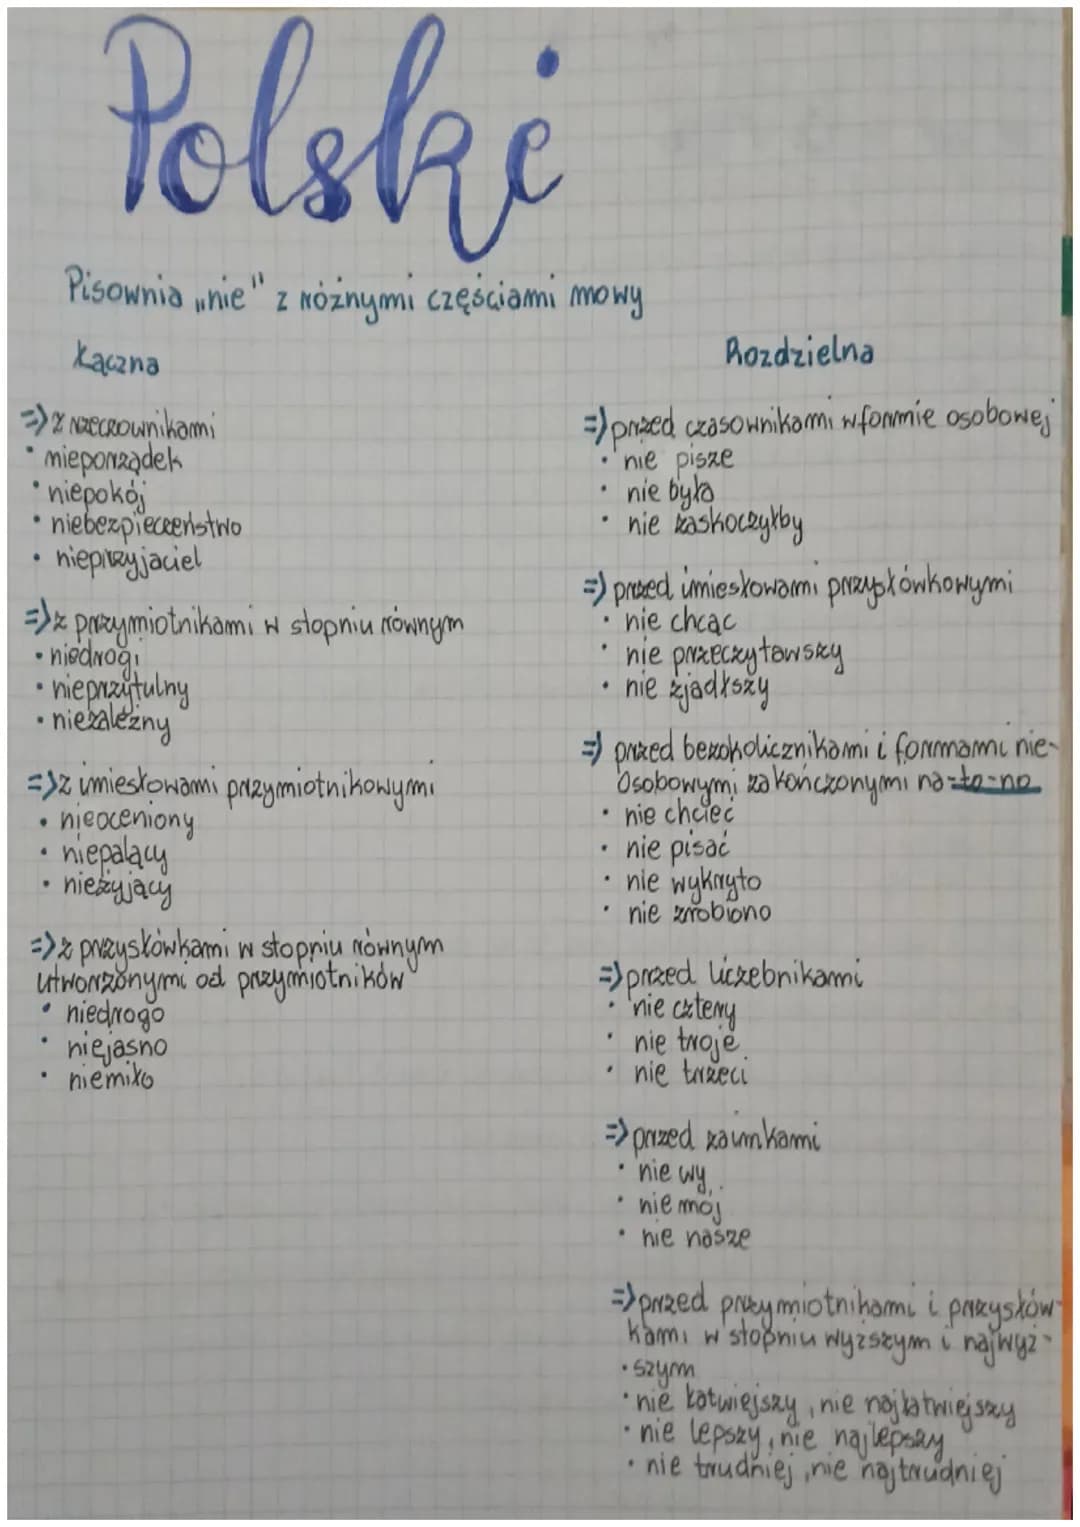 Polski
Pisownia „nie" z różnymi częściami mowy
Łączna
=> z rzeczownikami
• nieporządek
• niepokój
• niebezpieczeństwo
• nieprzyjaciel
=> z przymiotnikami w stopniu równym
• niedrogi
• nieprzytulny
• niezależny
=> z imiesłowami przymiotnikowymi
• nieoceniony
• niepalący
• nieżyjący
=> z przysłówkami w stopniu równym
utworzonymi od przymiotników
• niedrogo
• niejasno
• niemiło
Rozdzielna
=> przed czasownikami w formie osobowej
• nie pisze
• nie była
• nie zaskoczyłby
=> przed imiesłowami przysłówkowymi
• nie chcąc
• nie przeczytawszy
• nie zjadłszy
=> przed bezokolicznikami i formami nie-
osobowymi zakończonymi na -to -no
• nie chcieć
• nie pisać
• nie wykryto
• nie zrobiono
=> przed liczebnikami
• nie cztery
• nie troje
• nie trzeci
=> przed zaimkami
• nie wy
• nie mój
• nie nasze
=> przed przymiotnikami i przysłów-
kami w stopniu wyższym i najwyż-
• szym
• nie łatwiejszy, nie najłatwiejszy
• nie lepszy, nie najlepszy
• nie trudniej, nie najtrudniej